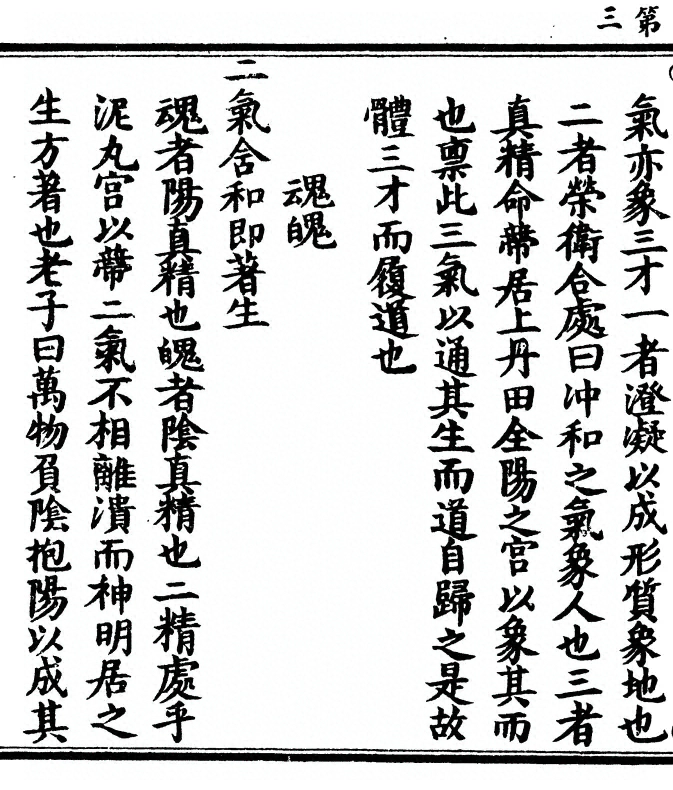 第三
氣亦象三才一者澄凝以成形質象地也
二者榮衛合處曰冲和之氣象人也三者
真精命蔕居上丹田全陽之宮以象其而
也禀此三氣以通其生而道自歸之是故
體三才而履道也
魂魄
二氣含和即著生
魂者陽真精也魄者陰真精也二精處乎
泥丸宮以蔕二氣不相離潰而神明居之
生方著也老子曰萬物負陰抱陽以成其